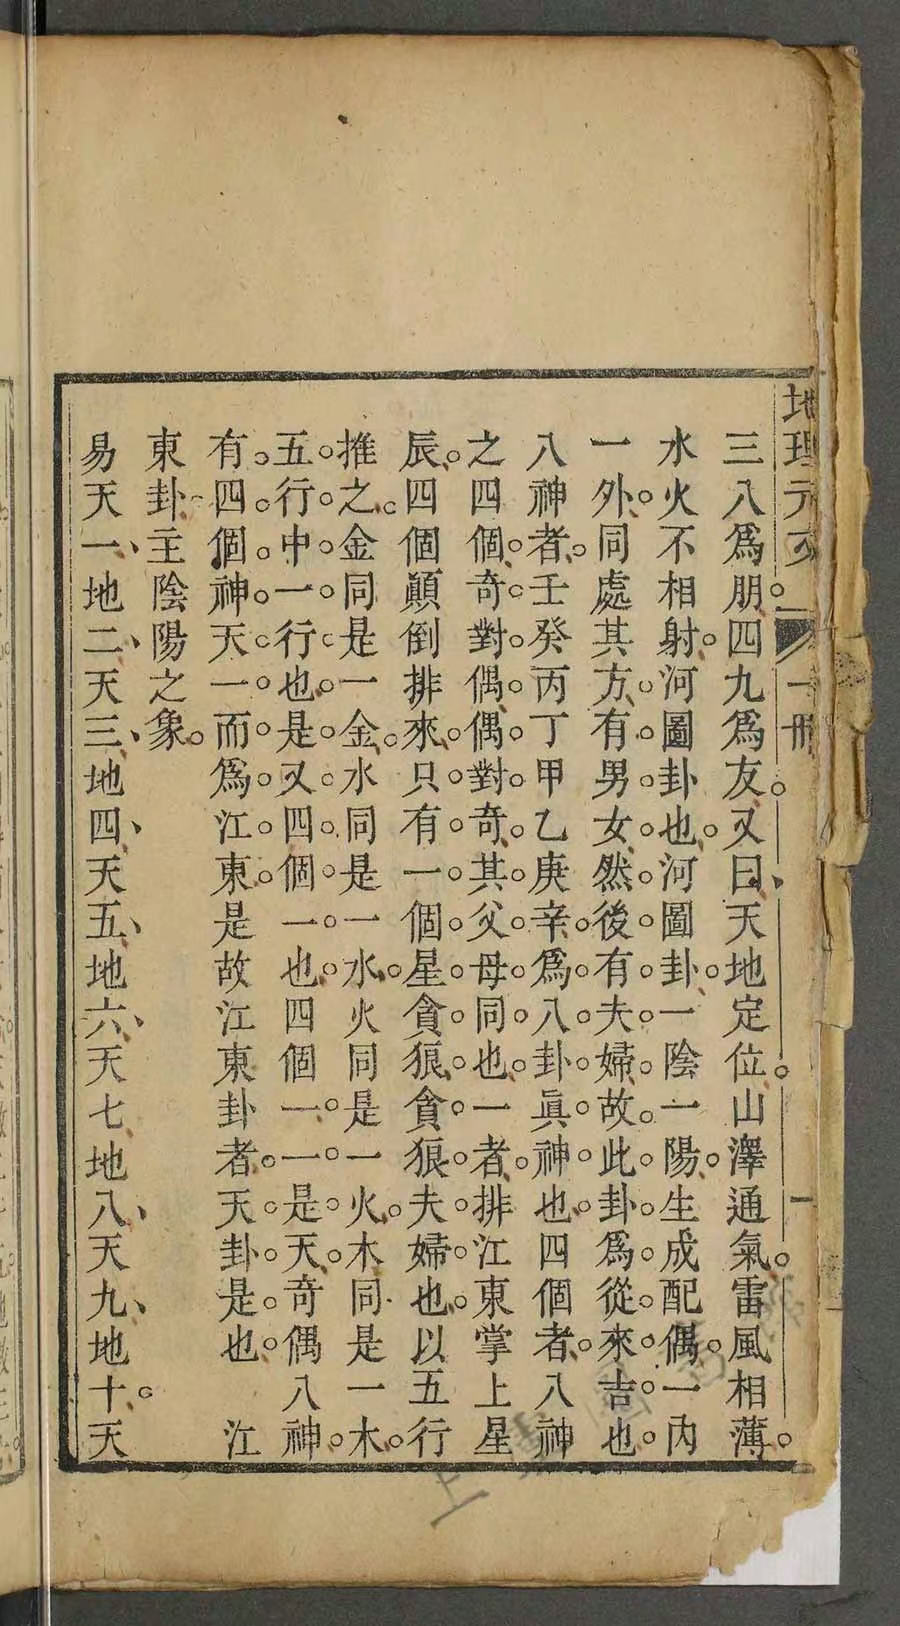 地理元文 一冊 一
三八爲朋。四九爲友。又曰、天地定位。山澤通氣。雷風相薄。
水火不相射。河圖卦也。河圖卦。一陰一陽。生成配偶。一內
一外。同處其方。有男女。然後有夫婦。故此卦。爲從來吉也。
八神者。壬癸丙丁甲乙庚辛。爲八卦。眞神也。四個者。八神
之四個。奇對偶。偶對奇。其父母同也。一者。排江東掌上星
辰。四個顛倒排來。只有一個星。貪狼。貪狼。夫婦也。以五行
推之。金同是一金。水同是一水。火同是一火。木同是一木。
五行中一行也。是又四個一也。四個一。一是天。奇偶八神。
有四個神。天一而爲江東。是故江東卦者。天卦是也。 江
東卦主陰陽之象。
易天一、地二、天三、地四、天五、地六、天七地八、天九、地十。天